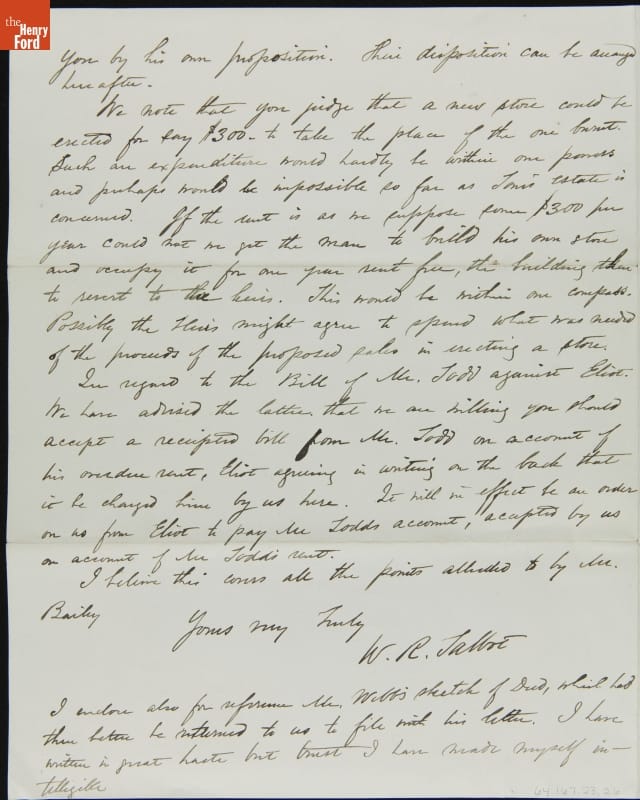 the
Henry
Ford
you by his own proposition. Their disposition can be arranged
hereafter.
We note that you judge that a new store could be
erected for say $300- to take the place of the one burnt.
Such an expenditure would hardly be within our powers
and perhaps would be impossible so far as Toni's estate is
concerned. If the rent is as we suppose some $300 per
year could not we get the man to build his own store
and occupy it for one year rent free, the building then
to revert to the heirs. This would be within our compass.
Possibly the Heirs might agree to spend what was needed
of the proceeds of the proposed sales in erecting a store.
In regard to the Bill of Mr. Todd against Eliot.
We have advised the latter that we are willing you should
accept a receipted bill from Mr. Todd on account of
his overdue rent, Eliot agreeing in writing on the back that
it be charged him by us here. It will in effect be an order
on us from Eliot to pay Mr Todds account, accepted by us
on account of Mr Todd's rent.
I believe this covers all the points alluded to by Mr.
Bailey
Yours very truly
W. R. Talbot
I enclose also for reference Mr. Webb's sketch of Deed, which had
then better be returned to us to file with his letter. I have
written in great haste but trust I have made myself in-
telligible
64.167.23.26